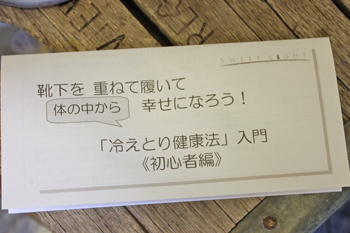 SWEET SIGHT
靴下を 重ねて履いて
体の中から 幸せになろう！
「冷えとり健康法」入門
《初心者編》